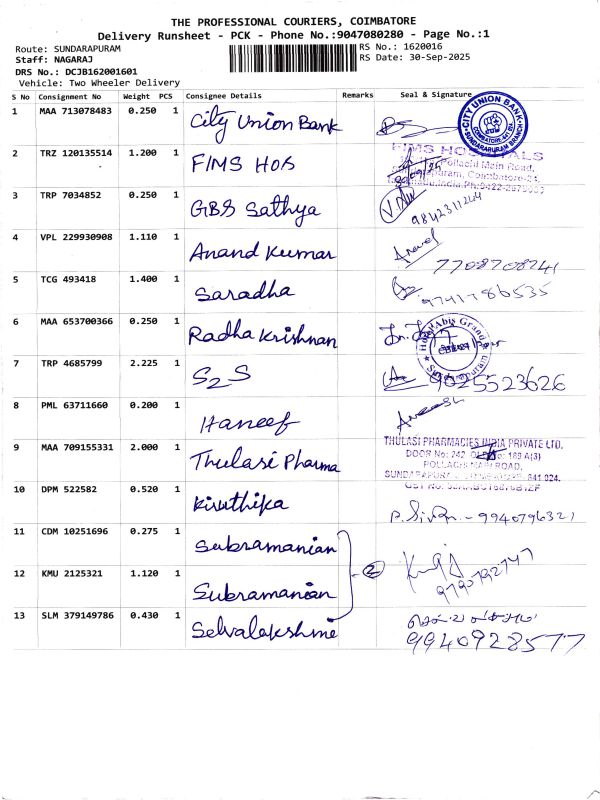 THE PROFESSIONAL COURIERS, COIMBATORE
Delivery Runsheet - PCK - Phone No.:9047080280 - Page No.:1
Route: SUNDARAPURAM
RS No.: 1620016
Staff: NAGARAJ
RS Date: 30-Sep-2025
DRS No.: DCJB162001601
Vehicle: Two Wheeler Delivery
S No Consignment No Weight PCS Consignee Details Remarks Seal & Signature
1 MAA 713078483 0.250 1 City Union Bank
CITY UNION BANK
SUNDARAPURAM BRANCH
2 TRZ 120135514 1.200 1 FIMS HOS
FIMS HOSPITALS
Pollachi Main Road,
Coimbatore-24.
3 TRP 7034852 0.250 1 GBS Sathya
9842311244
4 VPL 229930908 1.110 1 Anand Kumar
Anand
7708708241
5 TCG 493418 1.400 1 Saradha
9791786535
6 MAA 653700366 0.250 1 Radha Krishnan
Hotel Abis Grand
Sundarapuram
7 TRP 4685799 2.225 1 S2S
9025523626
8 PML 63711660 0.200 1 Haneef
9 MAA 709155331 2.000 1 Thulasi Pharma
THULASI PHARMACIES INDIA PRIVATE LTD.
DOOR No: 242 OLD No: 189 A(3)
POLLACHI MAIN ROAD,
10 DPM 522582 0.520 1 Kiruthika
9940796321
11 CDM 10251696 0.275 1 Subramanian
2
12 KMU 2125321 1.120 1 Subramanian
9790792747
13 SLM 379149786 0.430 1 Selvalakshmi
9940928577